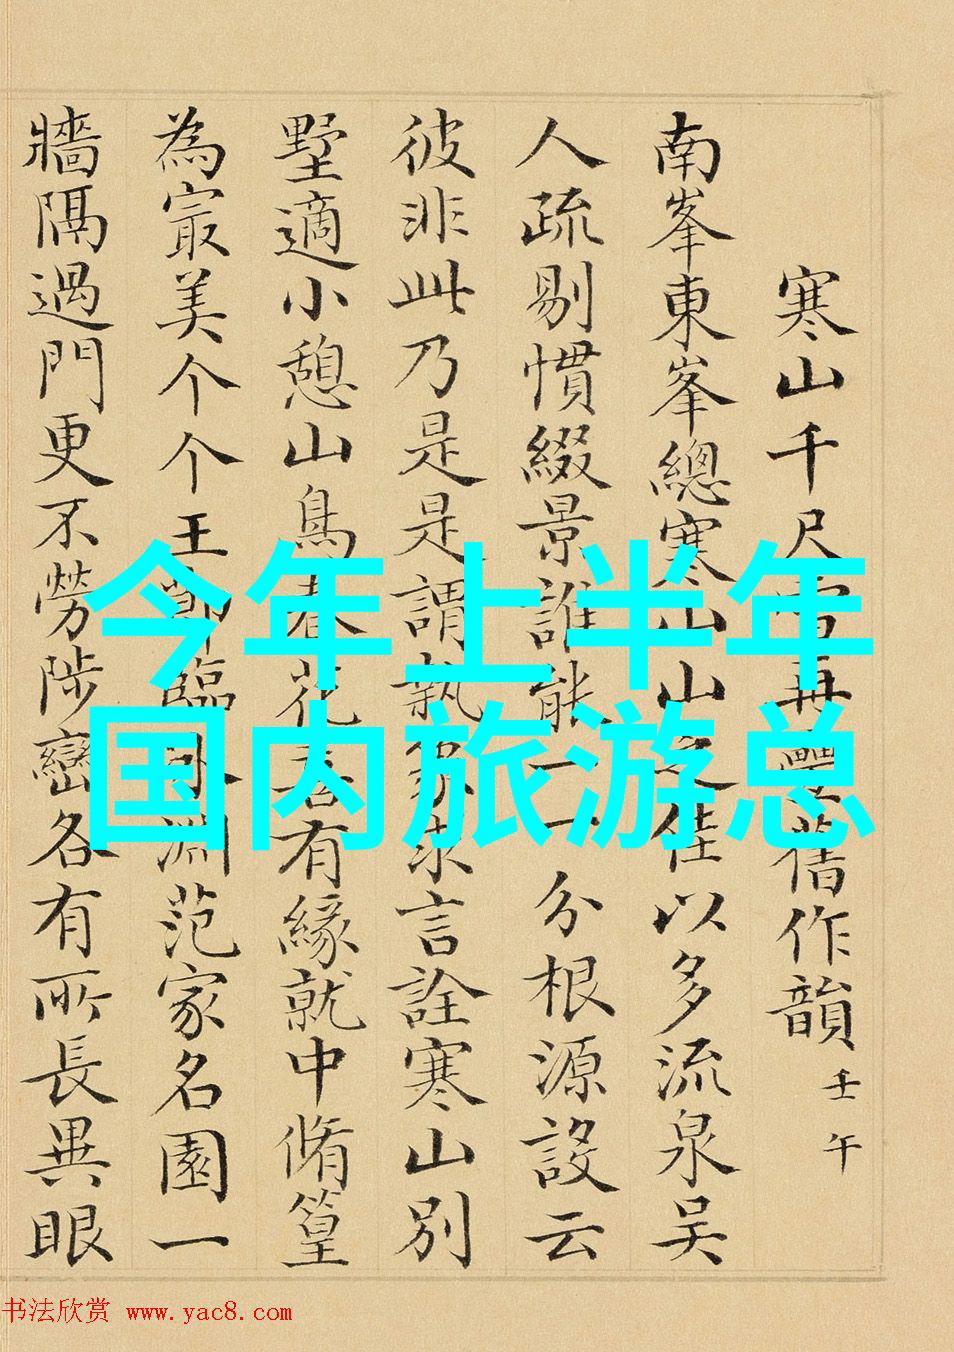 寒山千尺雪再疊舊作韻 壬午
南峯東峯總寒山山之佳以多流泉吴
人疏剔慣綴景誰能一一分根源設云
彼非此乃是是謂孰求言詮寒山别
墅適小憩山鳥春花吾有緣就中脩篁
為冣美个个王節臨淵范家名園一
牆隔過門更不勞陟巒各有所長異眼
今年上半年
国内旅游总
书法欣赏 www.yac8.com